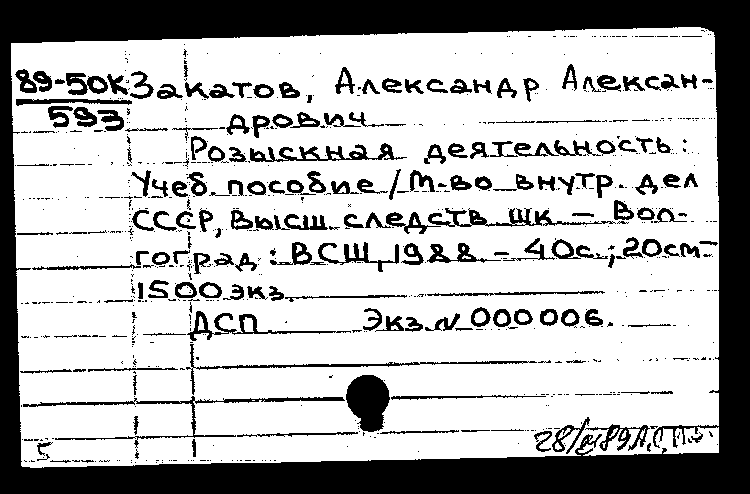 89-50к Закатов, Александр Алексан-
593 дрович
Розыскная деятельность:
Учеб. пособие / М-во внутр. дел
СССР, Высш. следств. шк. – Вол-
гоград: ВСШ, 1988. – 40с.; 20см–
1500экз.
ДСП. Экз. N 000006.
5